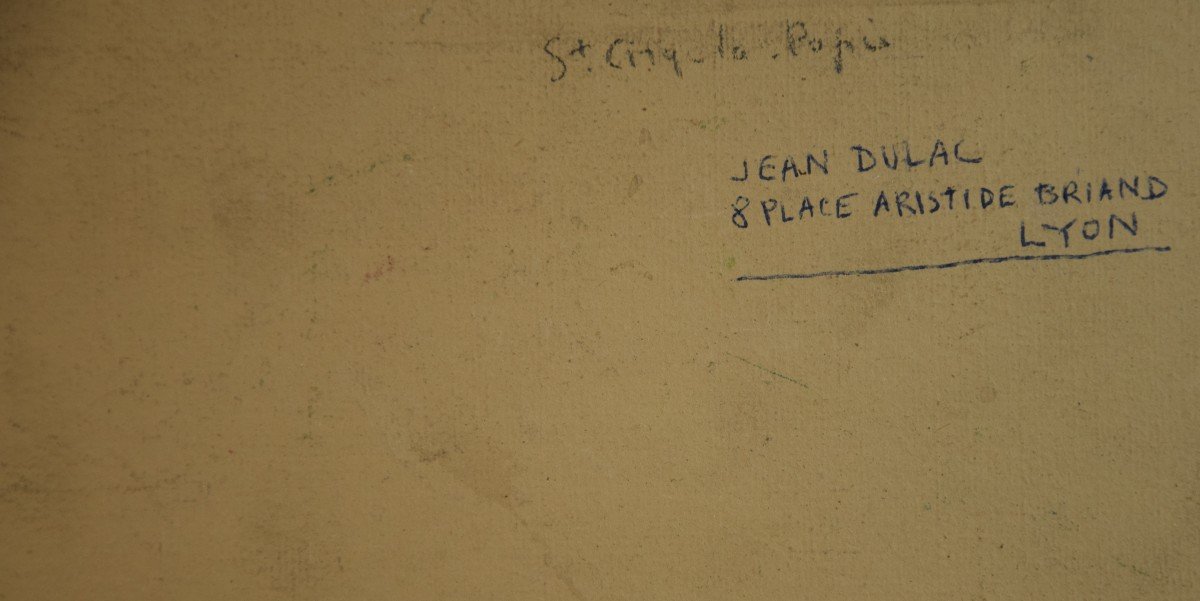 St. Cirq-la-Popie
JEAN DULAC
8 PLACE ARISTIDE BRIAND
LYON